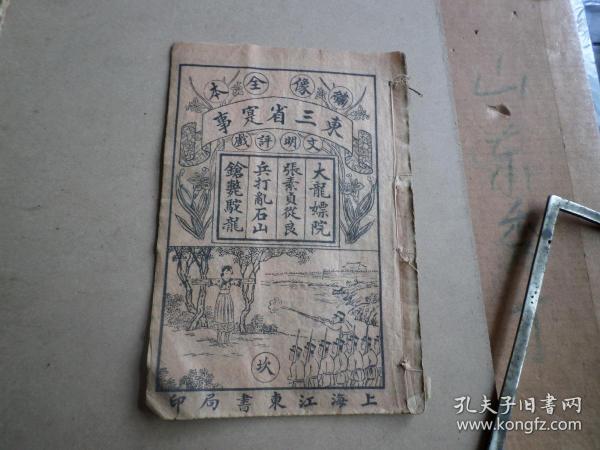 繡像全本
東三省寔事
文明評戲
大龍嫖院
張素貞從良
兵打亂石山
鎗斃駝龍
坎
上海江東書局印
山东
孔夫子旧书网
www.kongfz.com